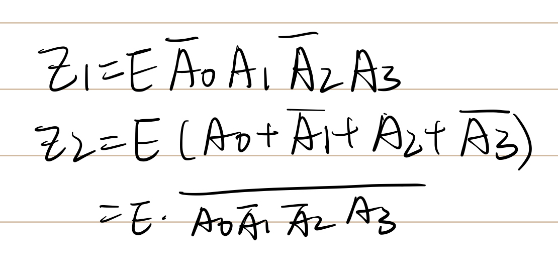 Z1=E A̅0 A1 A̅2 A3
Z2=E(A0+A̅1+A2+A̅3̅)
=E·\overline{A0 A̅1 A̅2 A3}